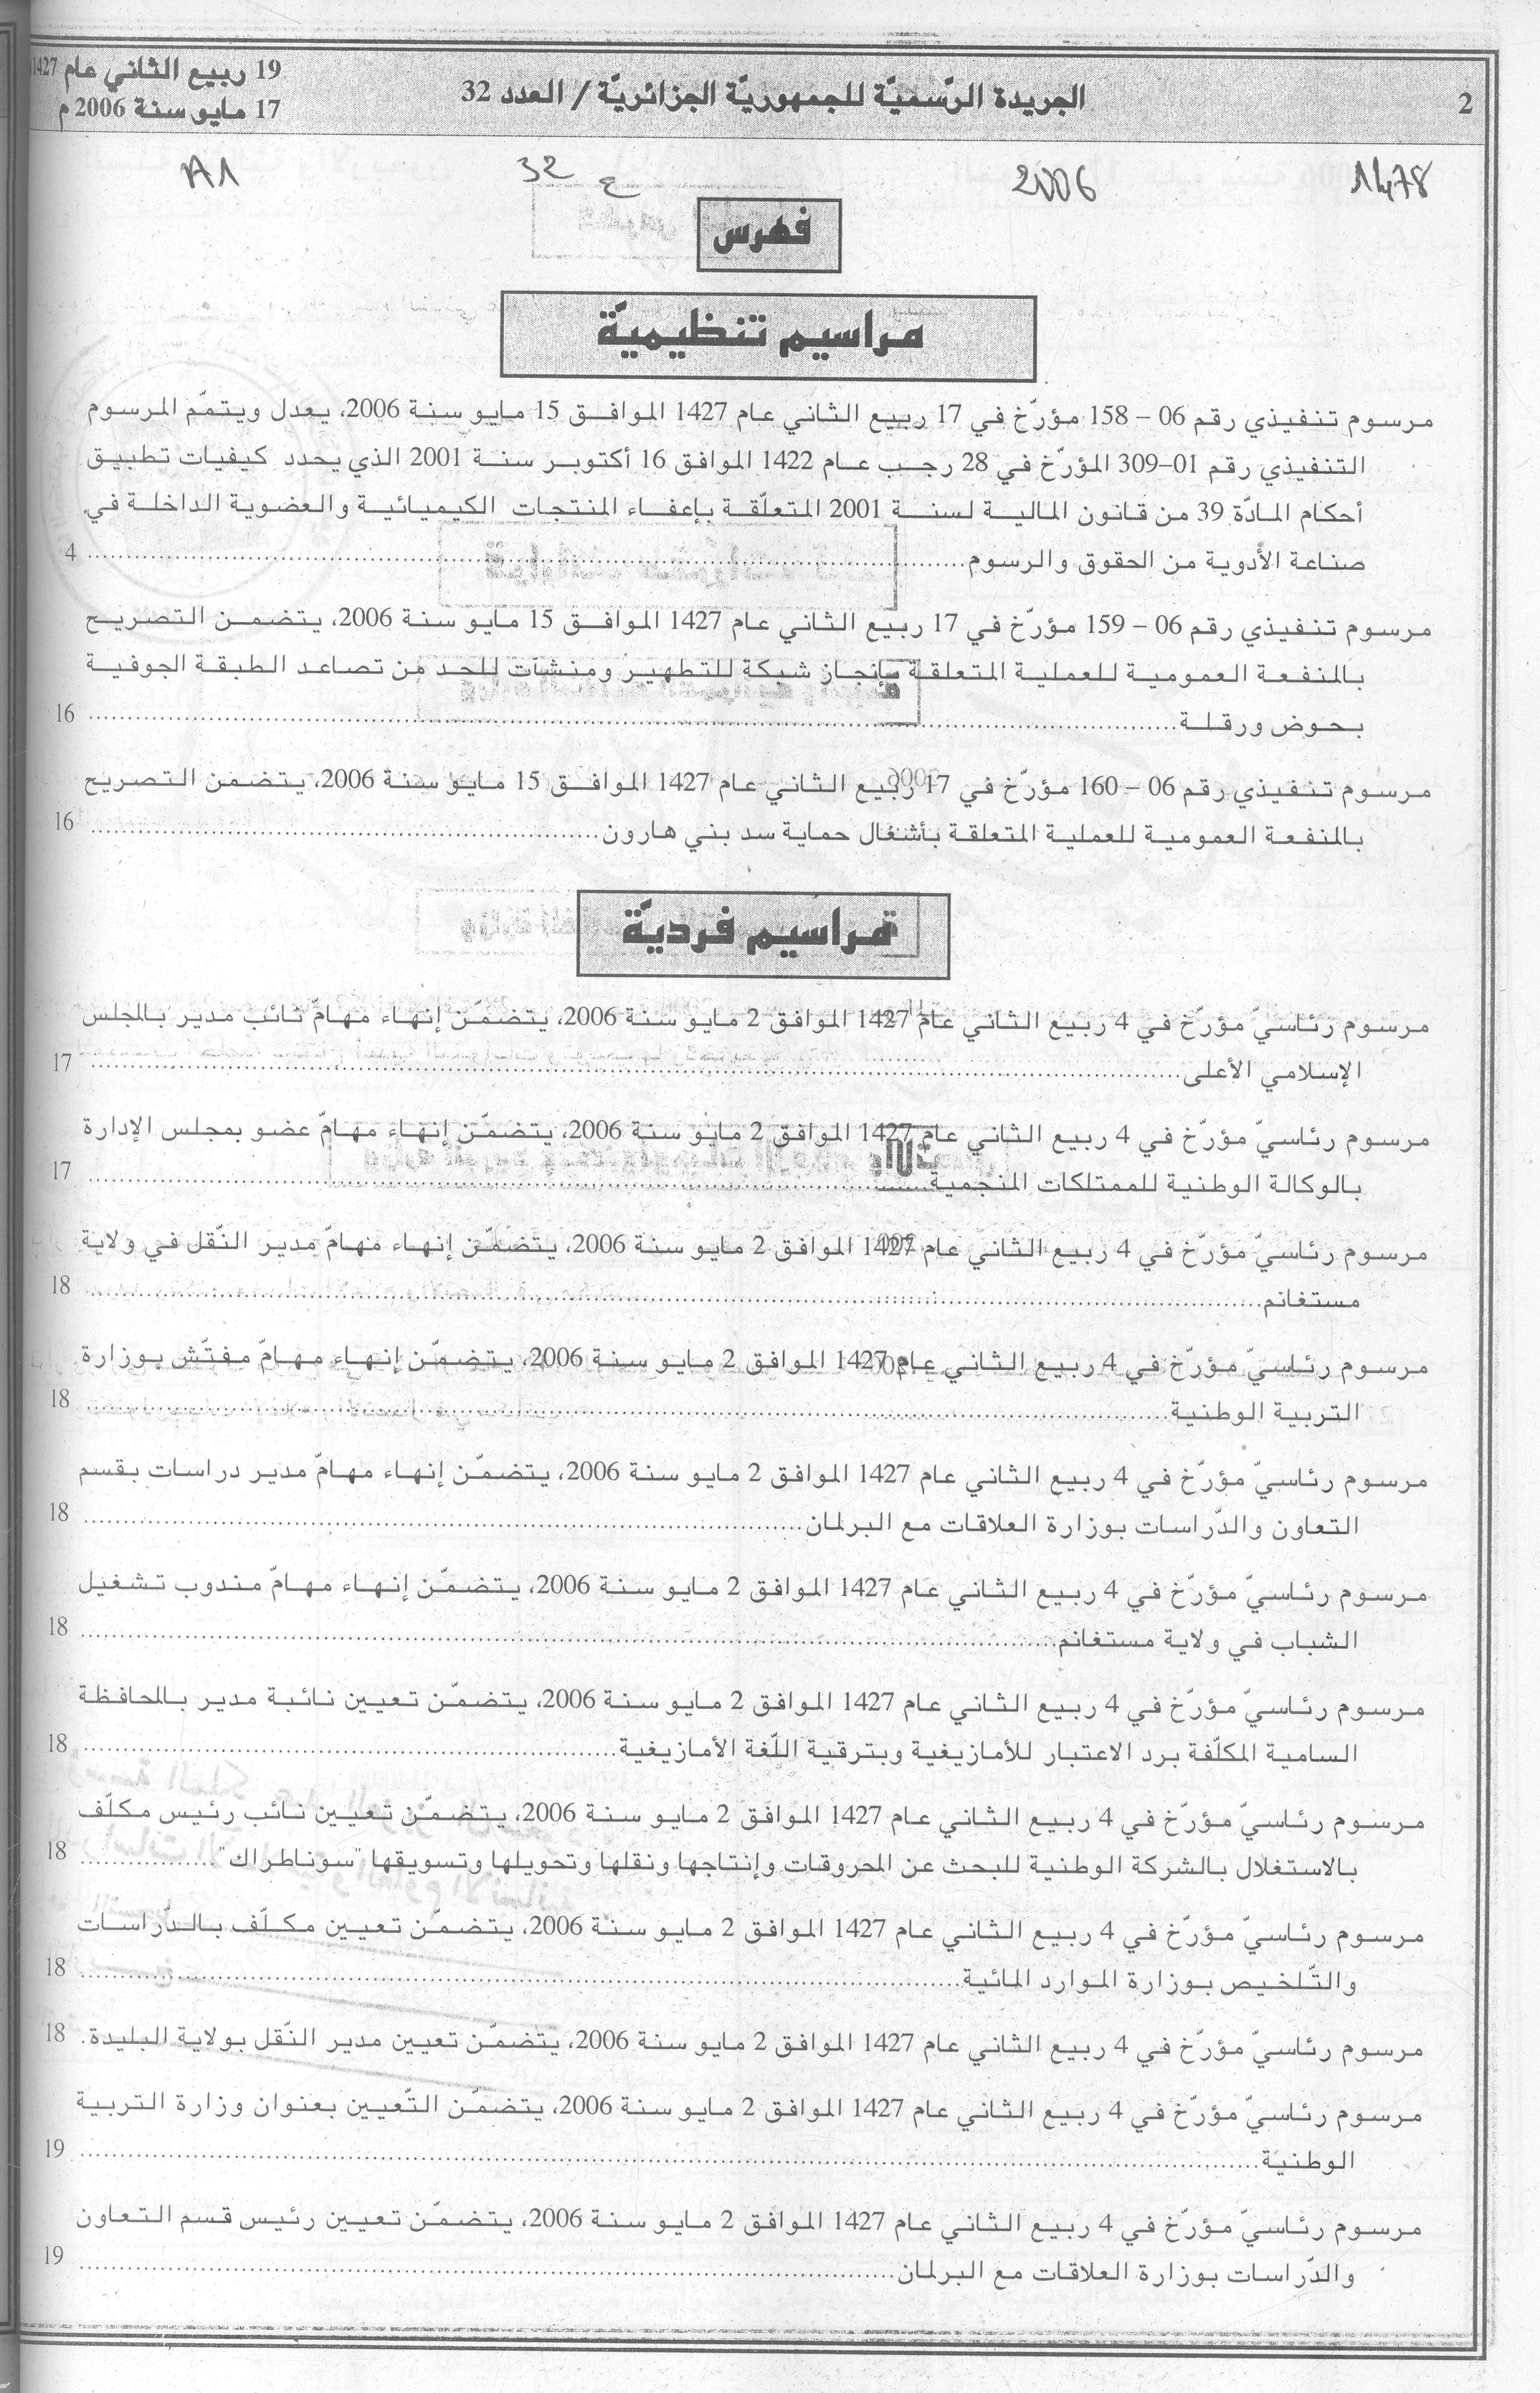 2
الجريدة الرّسميّة للجمهوريّة الجزائريّة / العدد 32
19 ربيع الثاني عام 1427
17 مايو سنة 2006 م
1478
2006
ع 32
A1
فهرس
مراسيم تنظيميّة
مرسوم تنفيذي رقم 06 – 158 مؤرّخ في 17 ربيع الثاني عام 1427 الموافق 15 مايو سنة 2006، يعدل ويتمّم المرسوم
التنفيذي رقم 01–309 المؤرّخ في 28 رجب عام 1422 الموافق 16 أكتوبر سنة 2001 الذي يحدد كيفيات تطبيق
أحكام المادّة 39 من قانون المالية لسنة 2001 المتعلّقة بإعفاء المنتجات الكيميائية والعضوية الداخلة في
صناعة الأدوية من الحقوق والرسوم.................... 4
مرسوم تنفيذي رقم 06 – 159 مؤرّخ في 17 ربيع الثاني عام 1427 الموافق 15 مايو سنة 2006، يتضمن التصريح
بالمنفعة العمومية للعملية المتعلقة بإنجاز شبكة للتطهير ومنشآت للحد من تصاعد الطبقة الجوفية
بحوض ورقلة.................... 16
مرسوم تنفيذي رقم 06 – 160 مؤرّخ في 17 ربيع الثاني عام 1427 الموافق 15 مايو سنة 2006، يتضمن التصريح
بالمنفعة العمومية للعملية المتعلقة بأشغال حماية سد بني هارون.................... 16
مراسيم فرديّة
مرسوم رئاسيّ مؤرّخ في 4 ربيع الثاني عام 1427 الموافق 2 مايو سنة 2006، يتضمّن إنهاء مهامّ نائب مدير بالمجلس
الإسلامي الأعلى.................... 17
مرسوم رئاسيّ مؤرّخ في 4 ربيع الثاني عام 1427 الموافق 2 مايو سنة 2006، يتضمّن إنهاء مهامّ عضو بمجلس الإدارة
بالوكالة الوطنية للممتلكات المنجمية.................... 17
مرسوم رئاسيّ مؤرّخ في 4 ربيع الثاني عام 1427 الموافق 2 مايو سنة 2006، يتضمّن إنهاء مهامّ مدير النّقل في ولاية
مستغانم.................... 18
مرسوم رئاسيّ مؤرّخ في 4 ربيع الثاني عام 1427 الموافق 2 مايو سنة 2006، يتضمّن إنهاء مهامّ مفتّش بوزارة
التربية الوطنية.................... 18
مرسوم رئاسيّ مؤرّخ في 4 ربيع الثاني عام 1427 الموافق 2 مايو سنة 2006، يتضمّن إنهاء مهامّ مدير دراسات بقسم
التعاون والدّراسات بوزارة العلاقات مع البرلمان.................... 18
مرسوم رئاسيّ مؤرّخ في 4 ربيع الثاني عام 1427 الموافق 2 مايو سنة 2006، يتضمّن إنهاء مهامّ مندوب تشغيل
الشباب في ولاية مستغانم.................... 18
مرسوم رئاسيّ مؤرّخ في 4 ربيع الثاني عام 1427 الموافق 2 مايو سنة 2006، يتضمّن تعيين نائبة مدير بالمحافظة
السامية المكلّفة برد الاعتبار للأمازيغية وبترقية اللّغة الأمازيغية.................... 18
مرسوم رئاسيّ مؤرّخ في 4 ربيع الثاني عام 1427 الموافق 2 مايو سنة 2006، يتضمّن تعيين نائب رئيس مكلّف
بالاستغلال بالشركة الوطنية للبحث عن المحروقات وإنتاجها ونقلها وتحويلها وتسويقها "سوناطراك".................... 18
مرسوم رئاسيّ مؤرّخ في 4 ربيع الثاني عام 1427 الموافق 2 مايو سنة 2006، يتضمّن تعيين مكلّف بالدّراسات
والتّلخيص بوزارة الموارد المائية.................... 18
مرسوم رئاسيّ مؤرّخ في 4 ربيع الثاني عام 1427 الموافق 2 مايو سنة 2006، يتضمّن تعيين مدير النّقل بولاية البليدة. 18
مرسوم رئاسيّ مؤرّخ في 4 ربيع الثاني عام 1427 الموافق 2 مايو سنة 2006، يتضمّن التّعيين بعنوان وزارة التربية
الوطنية.................... 19
مرسوم رئاسيّ مؤرّخ في 4 ربيع الثاني عام 1427 الموافق 2 مايو سنة 2006، يتضمّن تعيين رئيس قسم التعاون
والدّراسات بوزارة العلاقات مع البرلمان.................... 19